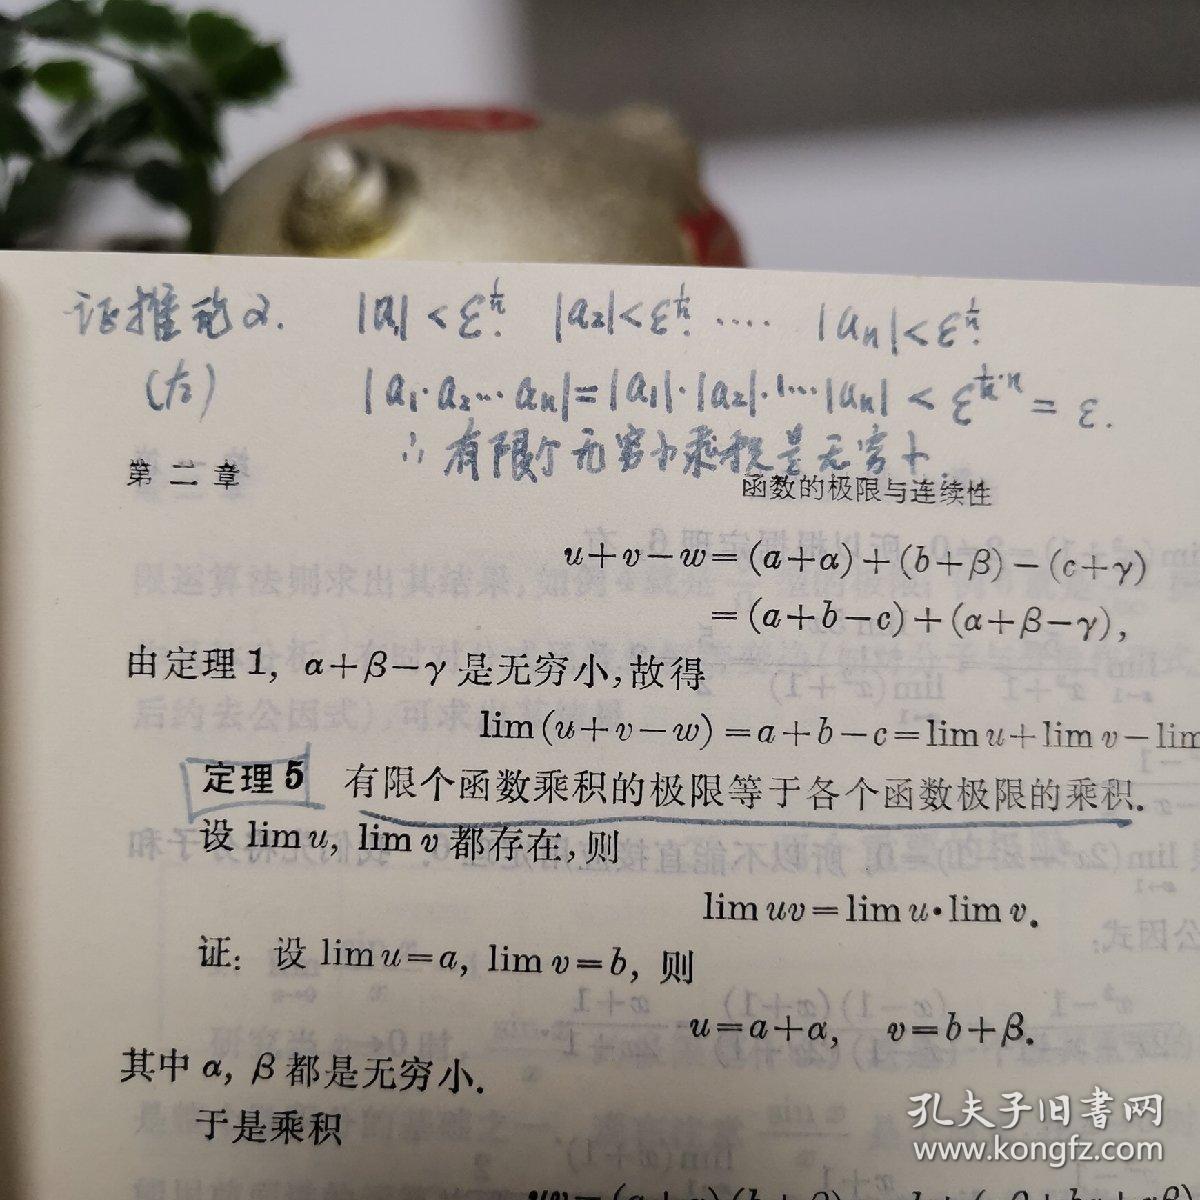 证推论2. |a₁|<ε^{1/n}. |a₂|<ε^{1/n}. .... |aₙ|<ε^{1/n}.
(左) |a₁·a₂…aₙ|=|a₁|·|a₂|·…|aₙ| < ε^{1/n·n} = ε.
∴有限个无穷小乘积是无穷小.
第二章 函数的极限与连续性
u+v−w=(a+α)+(b+β)−(c+γ)
=(a+b−c)+(α+β−γ),
由定理1, α+β−γ是无穷小,故得
lim(u+v−w)=a+b−c=lim u+lim v−lim
定理5 有限个函数乘积的极限等于各个函数极限的乘积.
设lim u, lim v都存在,则
lim uv=lim u·lim v.
证: 设lim u=a, lim v=b, 则
u=a+α, v=b+β.
其中α, β都是无穷小.
于是乘积
孔夫子旧书网
www.kongfz.com